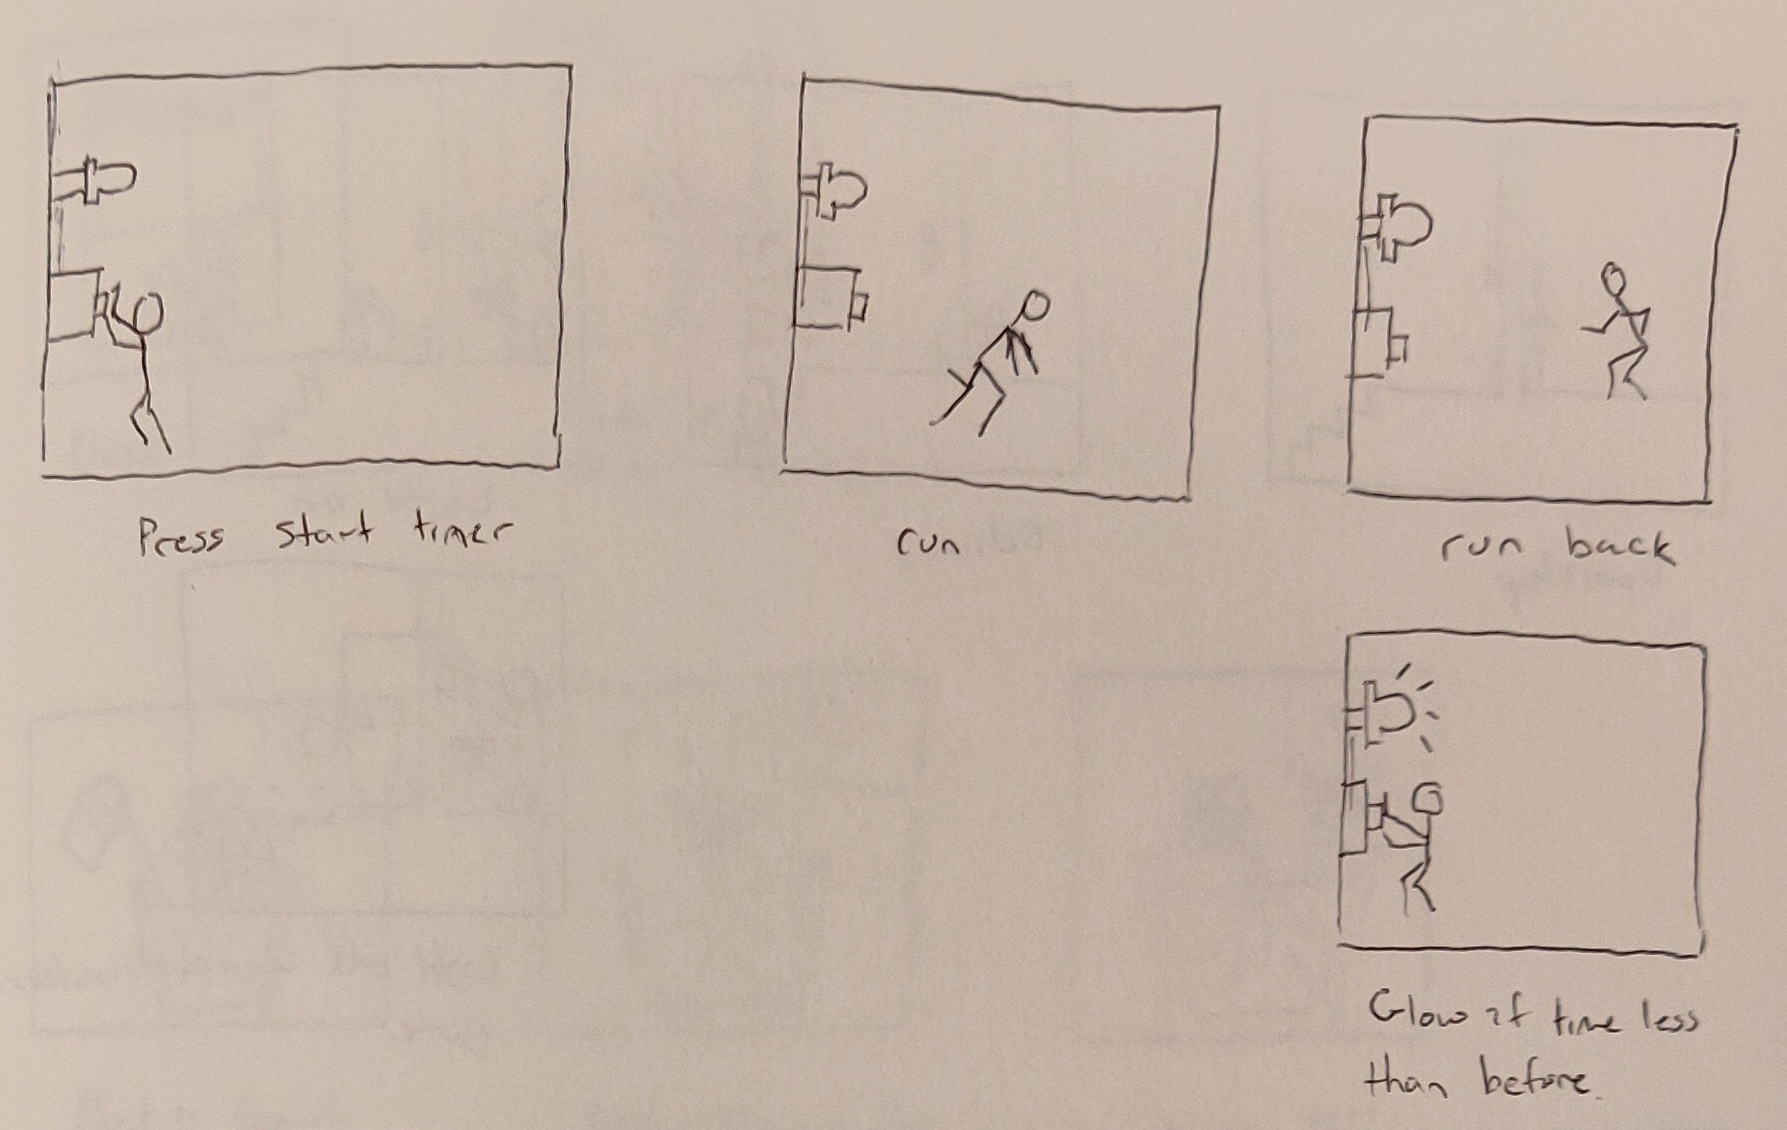 Press start timer
run
run back
Glow if time less
than before.